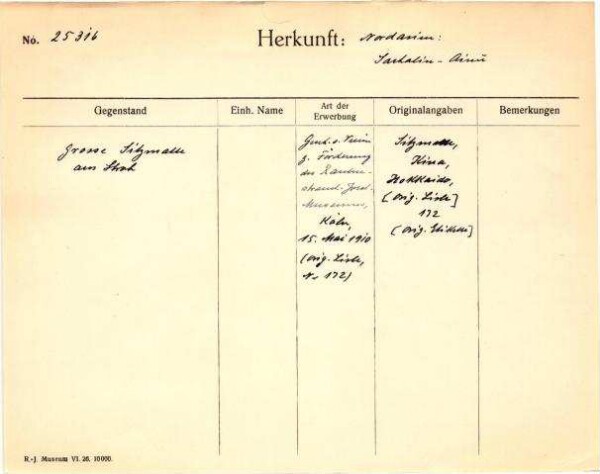 No. 25316
Herkunft: Nordasien:
Sachalin - Ainu
Gegenstand
Einh. Name
Art der Erwerbung
Originalangaben
Bemerkungen
Grosse Sitzmatte
aus Stroh
Gesch. v. Verein
z. Förderung
des Rauten-
strauch-Joest-
Museums,
Köln,
15. Mai 1910
(orig. Liste,
No 172)
Sitzmatte,
Kina,
Hokkaido,
(orig. Liste]
172
(orig. Etikette]
R.-J. Museum VI. 26. 10000.